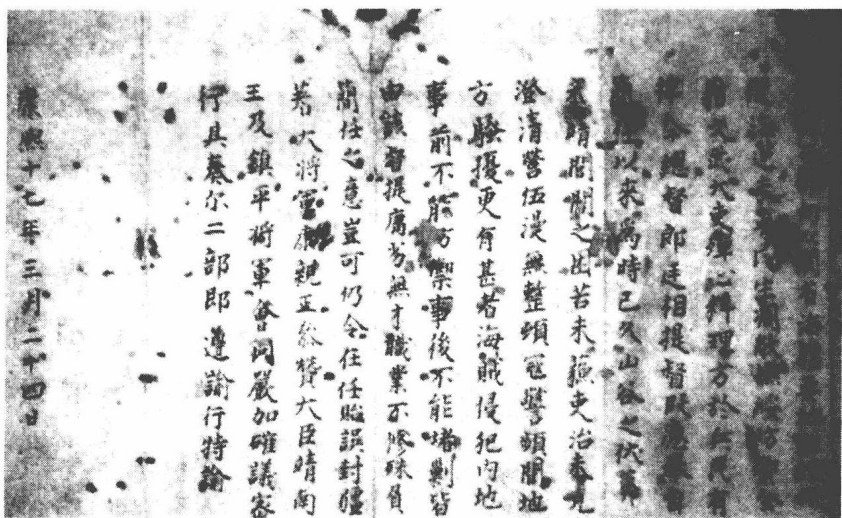 民生凋敝
大吏殫心料理方於
今總督郎廷相提督段應舉自
以來為時已久山谷之伏莽
未靖閭閻之困苦未蘇吏治未見
澄清營伍漫無整頓寇警頻聞地
方騷擾更有甚者海賊侵犯內地
事前不能防禦事後不能堵剿皆
由該督提庸劣無才職業不修殊負
簡任之意豈可仍令在任貽誤封疆
著大將軍康親王參贊大臣靖南
王及鎮平將軍會同嚴加確議密
行具奏尔二部即遵諭行特諭
康熙十七年三月二十四日